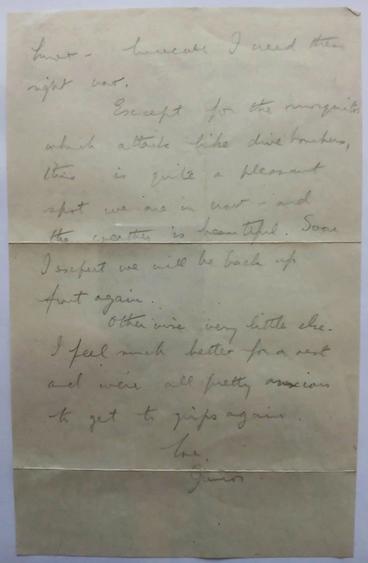 because I need them
right now.
Except for the mosquitos
which attack like dive bombers,
this is quite a pleasant
spot we are in now - and
the weather is beautiful. Soon
I expect we will be back up
front again.
Otherwise very little else.
I feel much better for a rest
and we're all pretty anxious
to get to grips again.
Love,